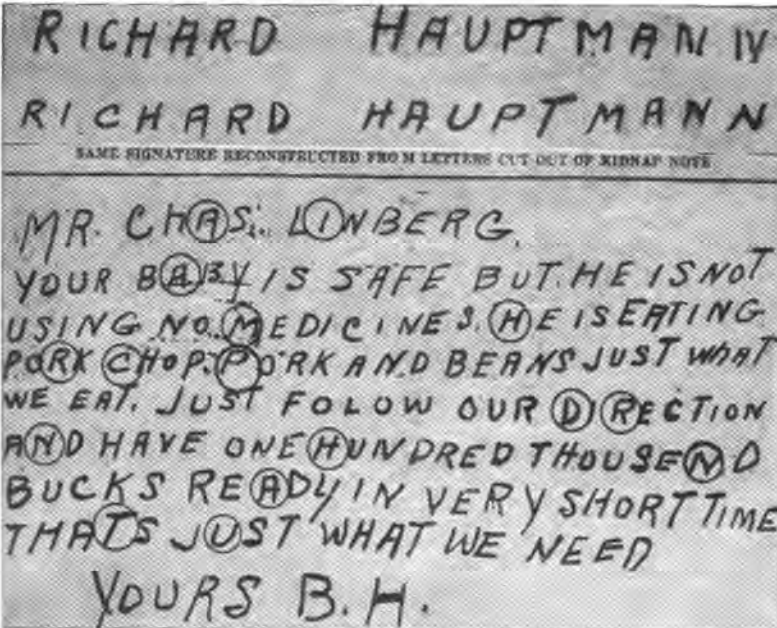 RICHARD HAUPTMANN
RICHARD HAUPTMANN
SAME SIGNATURE RECONSTRUCTED FROM LETTERS CUT OUT OF KIDNAP NOTE
MR. CHAS. LINBERG.
YOUR BABY IS SAFE BUT. HE IS NOT
USING NO. MEDICINES. HE IS EATING
PORK CHOP. PORK AND BEANS JUST WHAT
WE EAT. JUST FOLOW OUR DIRECTION
AND HAVE ONE HUNDRED THOUSEND
BUCKS READY IN VERY SHORT TIME
THATS JUST WHAT WE NEED
YOURS B. H.